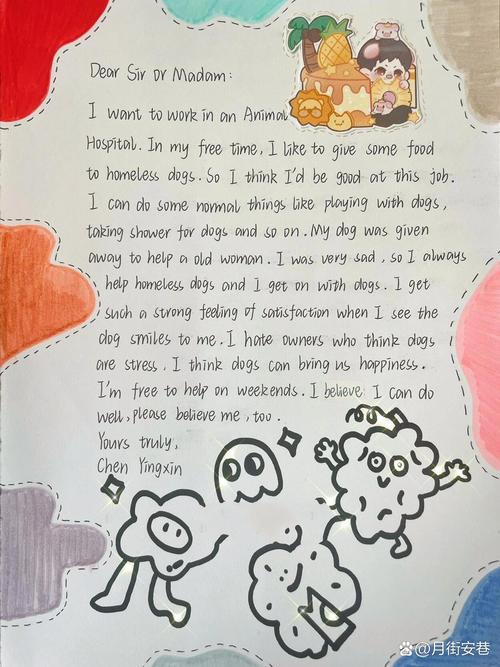 Dear Sir or Madam:
I want to work in an Animal
Hospital. In my free time, I like to give some food
to homeless dogs. So I think I'd be good at this job.
I can do some normal things like playing with dogs,
taking shower for dogs and so on. My dog was given
away to help a old woman. I was very sad, so I always
help homeless dogs and I get on with dogs. I get
such a strong feeling of satisfaction when I see the
dog smiles to me. I hate owners who think dogs
are stress. I think dogs can bring us happiness.
I'm free to help on weekends. I believe I can do
well, please believe me, too.
Yours truly,
Chen Yingxin
@月街安巷